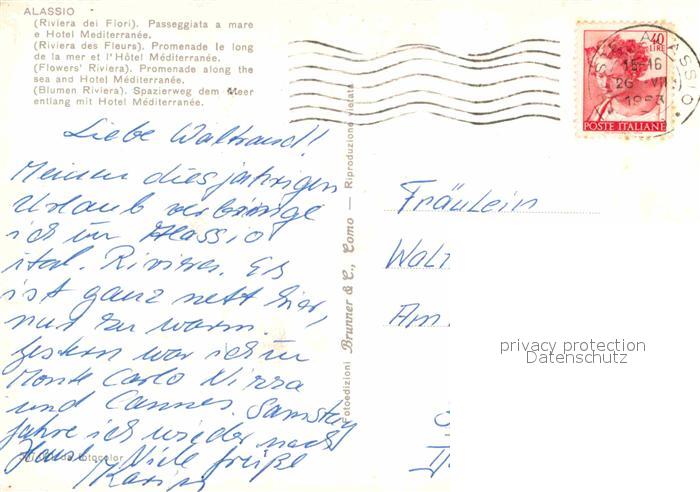 ALASSIO
(Riviera dei Fiori). Passeggiata a mare
e Hotel Mediterranée.
(Riviera des Fleurs). Promenade le long
de la mer et l'Hôtel Méditerranée.
(Flowers' Riviera). Promenade along the
sea and Hotel Méditerranée.
(Blumen Riviera). Spazierweg dem Meer
entlang mit Hotel Méditerranée.
Liebe Waltraud!
Meinen diesjährigen
Urlaub verbringe
ich in Alassio
ital. Riviera. Es
ist ganz nett hier,
nur zu warm.
Gestern war ich in
Monte Carlo Nizza
und Cannes. Samstag
fahre ich wieder nach
Haus. Viele Grüße
Karin
fotocolor
Fotoedizioni Brunner & C., Como — Riproduzione vietata
40
LIRE
POSTE ITALIANE
ALASSIO
15-16
26 VII
Fräulein
Walt
Am
privacy protection
Datenschutz